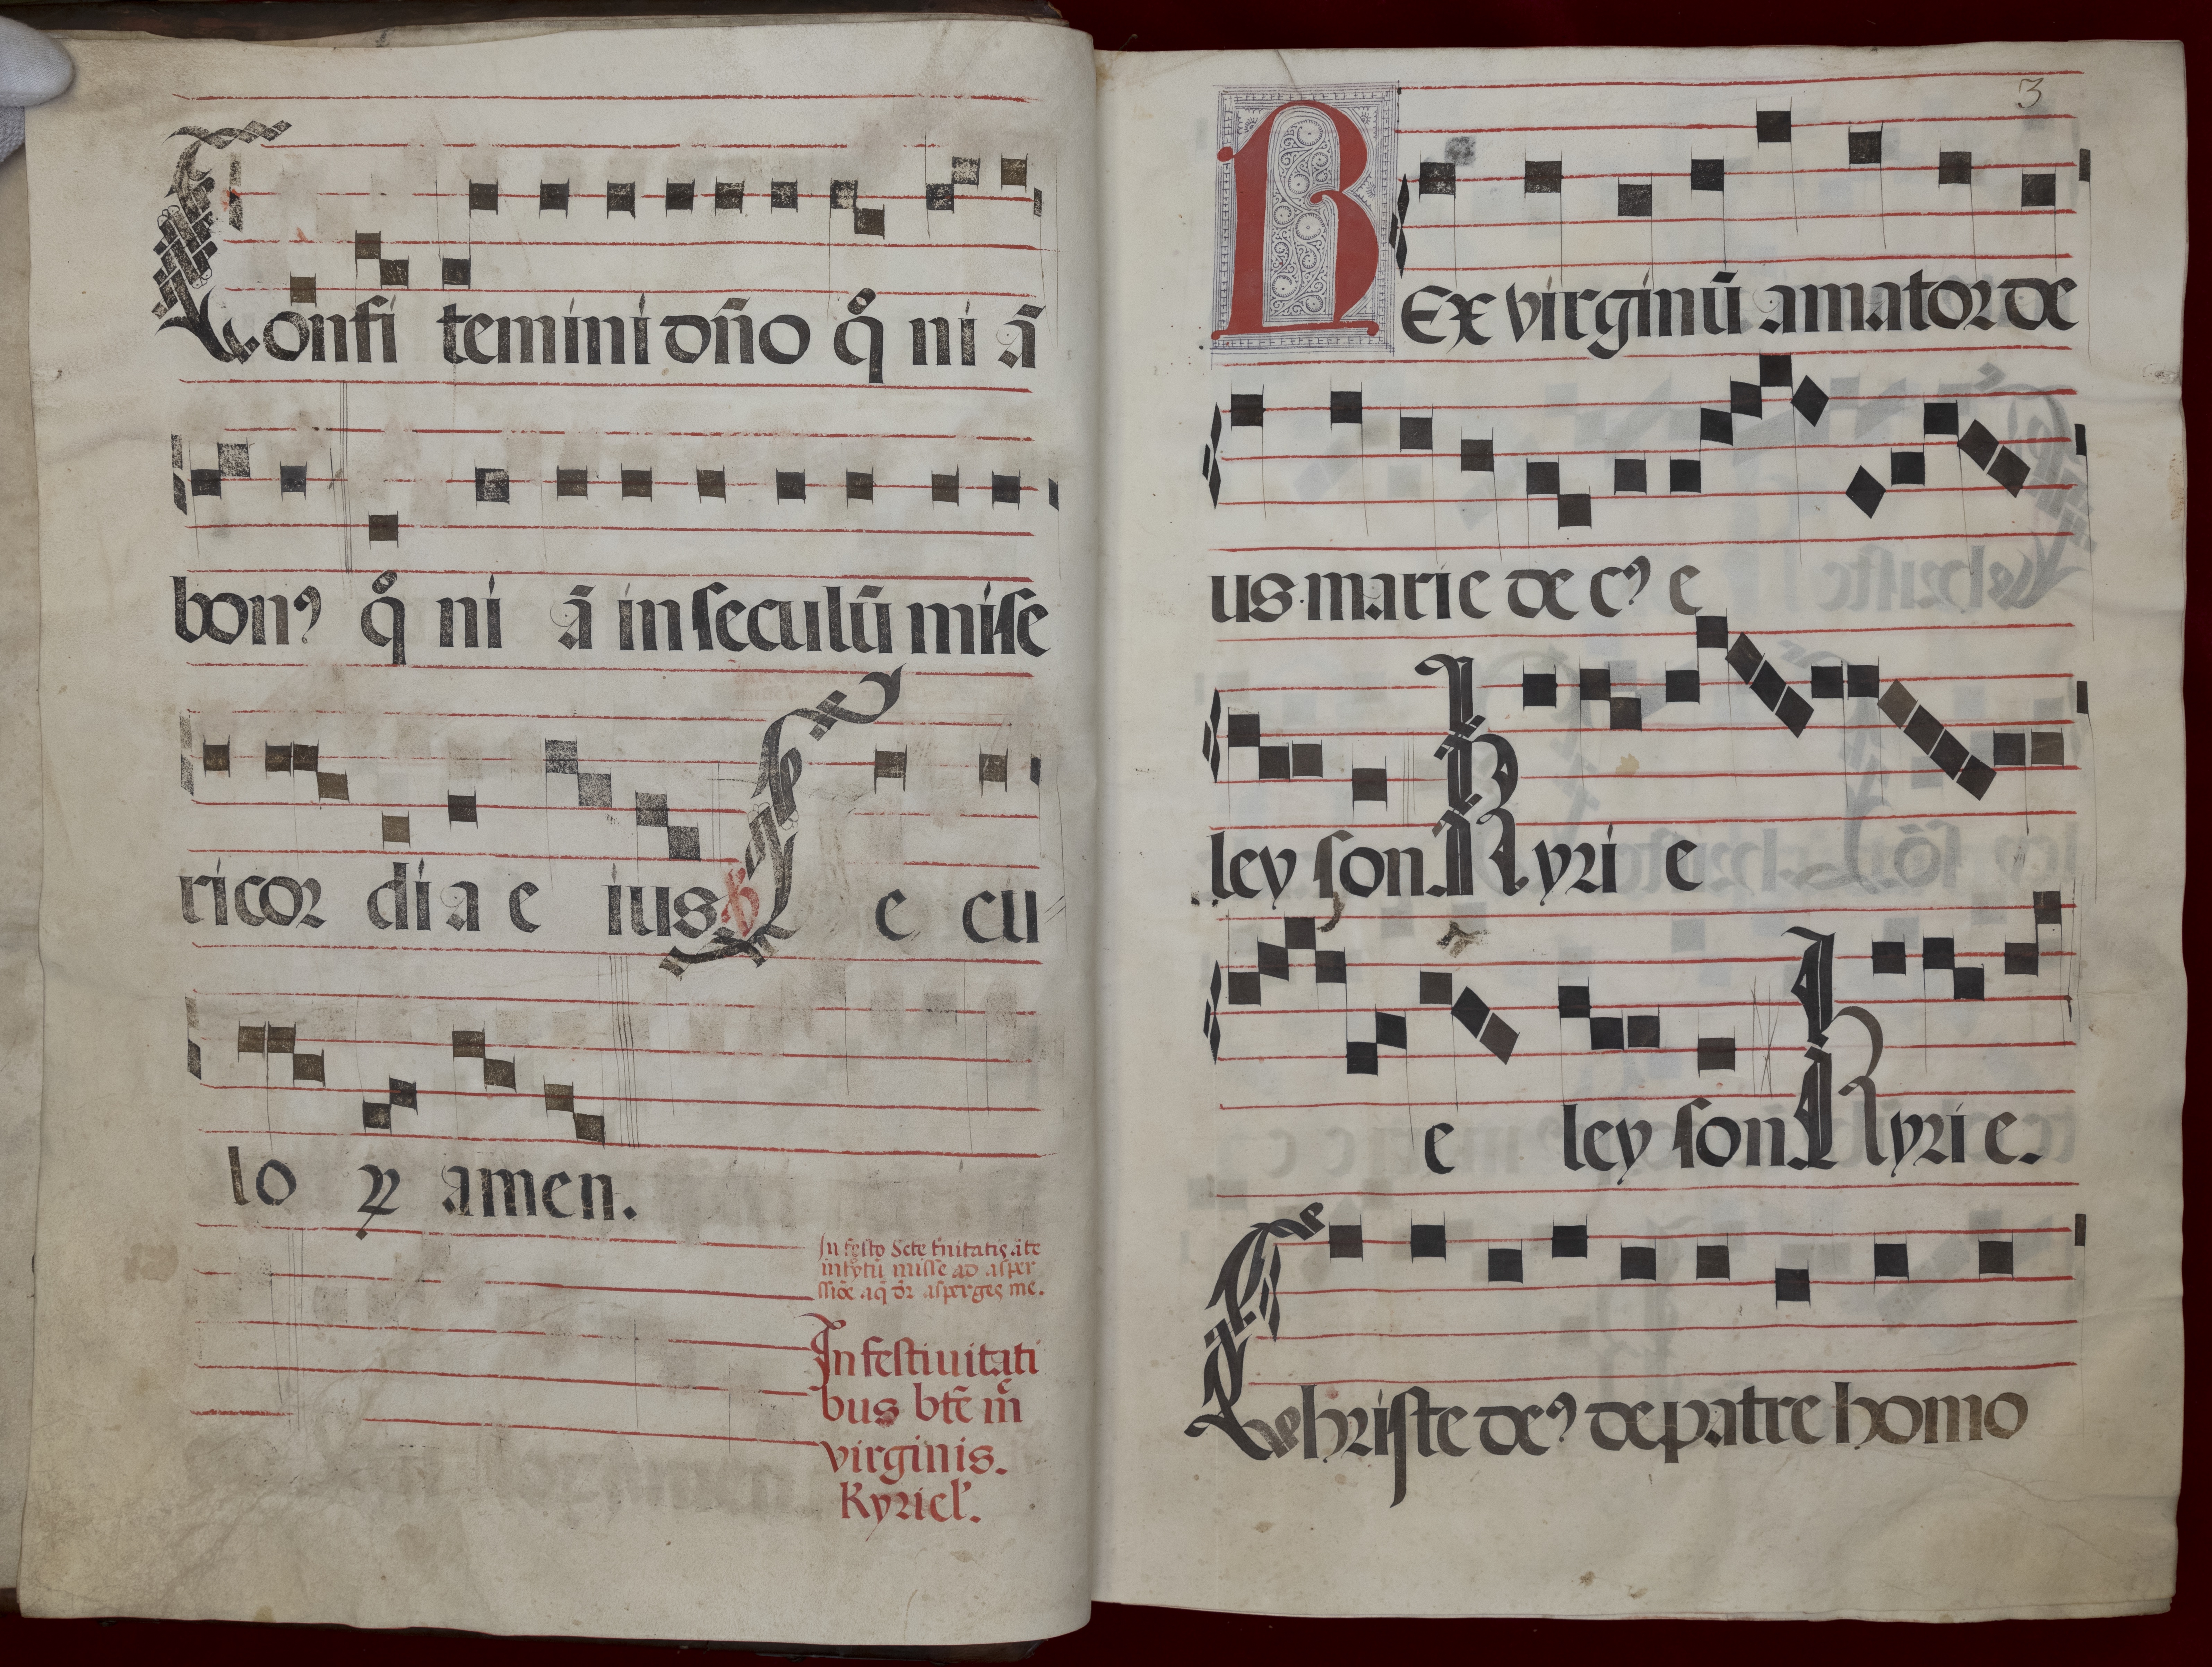 Confi temini dn̄o qm̄ ni ā
bonꝰ qm̄ ni ā in seculū mise
ricor di a e ius ℣ S e cu
lo ꝝ amen.
In festo Scte trinitatis āte
introytū misse ad asper
ssiōe aq̄ dr̄ asperges me.
In festiuitati
bus btē m̄e
virginis.
Kyriel'.
3
Rex virginū amator de
us marie de cꝰ e
ley son. Kyri e
e ley son. Kyri e.
Christe deꝰ de patre homo